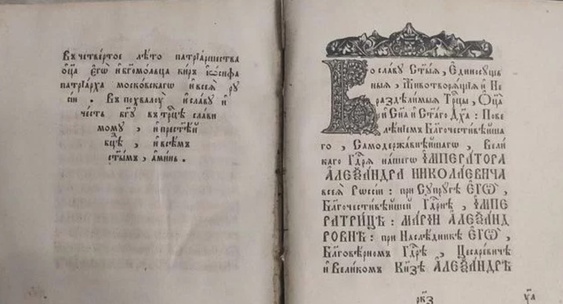 Въ четвертое лѣто патрїаршества
ѻц҃а єгѡ̀ и҆ бг҃омольца кѷръ і҆ѡ́сифа
патрїарха московскагѡ и҆ всеѧ̀ рꙋ
сі́и . Въ похвалꙋ и҆ славꙋ и҆
честь бг҃ꙋ въ трⷪ҇цѣ слави
момꙋ , и҆ прест҃ѣй
бцⷣѣ , и҆ всѣмъ
ст҃ымъ , а҆ми́нь .
Во славꙋ Ст҃ыѧ , Єдиносꙋщ
ныѧ , Животворѧщїѧ и҆ Не
раздѣлимыѧ Трⷪ҇цы , Ѻц҃а
и҆ Сн҃а и҆ Ст҃агѡ Дх҃а : Пове
лѣнїемъ Бл҃гочестивѣйша
гѡ , Самодержавнѣйшагѡ , Вели
кагѡ Гдⷭ҇рѧ нашегѡ І҆МПЕРАТОРА
А҆ЛЕѮАНДРА НИКОЛАЕВИЧА
всеѧ̀ Рѡссі́и : при Сꙋпрꙋгѣ Е҆ГѠ̀ ,
Бл҃гочестивѣйшей Гдⷭ҇рнѣ , І҆МПЕ
РАТРИЦѢ : МАРІИ А҆ЛЕѮАНД
РОВНѢ : при Наслѣдникѣ Е҆ГѠ̀ ,
Бл҃говѣрномъ Гдⷭ҇рѣ , Цесаревичѣ
и҆ Великомъ Кнѧ҃зѣ А҆ЛЕѮАНДРѢ